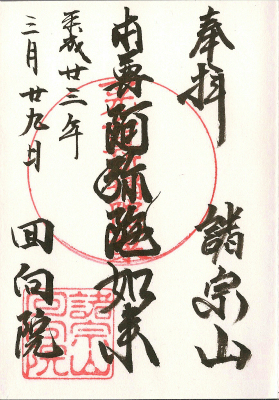 奉拝 諸宗山
本尊 阿弥陀如来
平成廿三年
三月廿九日
回向院
諸宗山
回向院